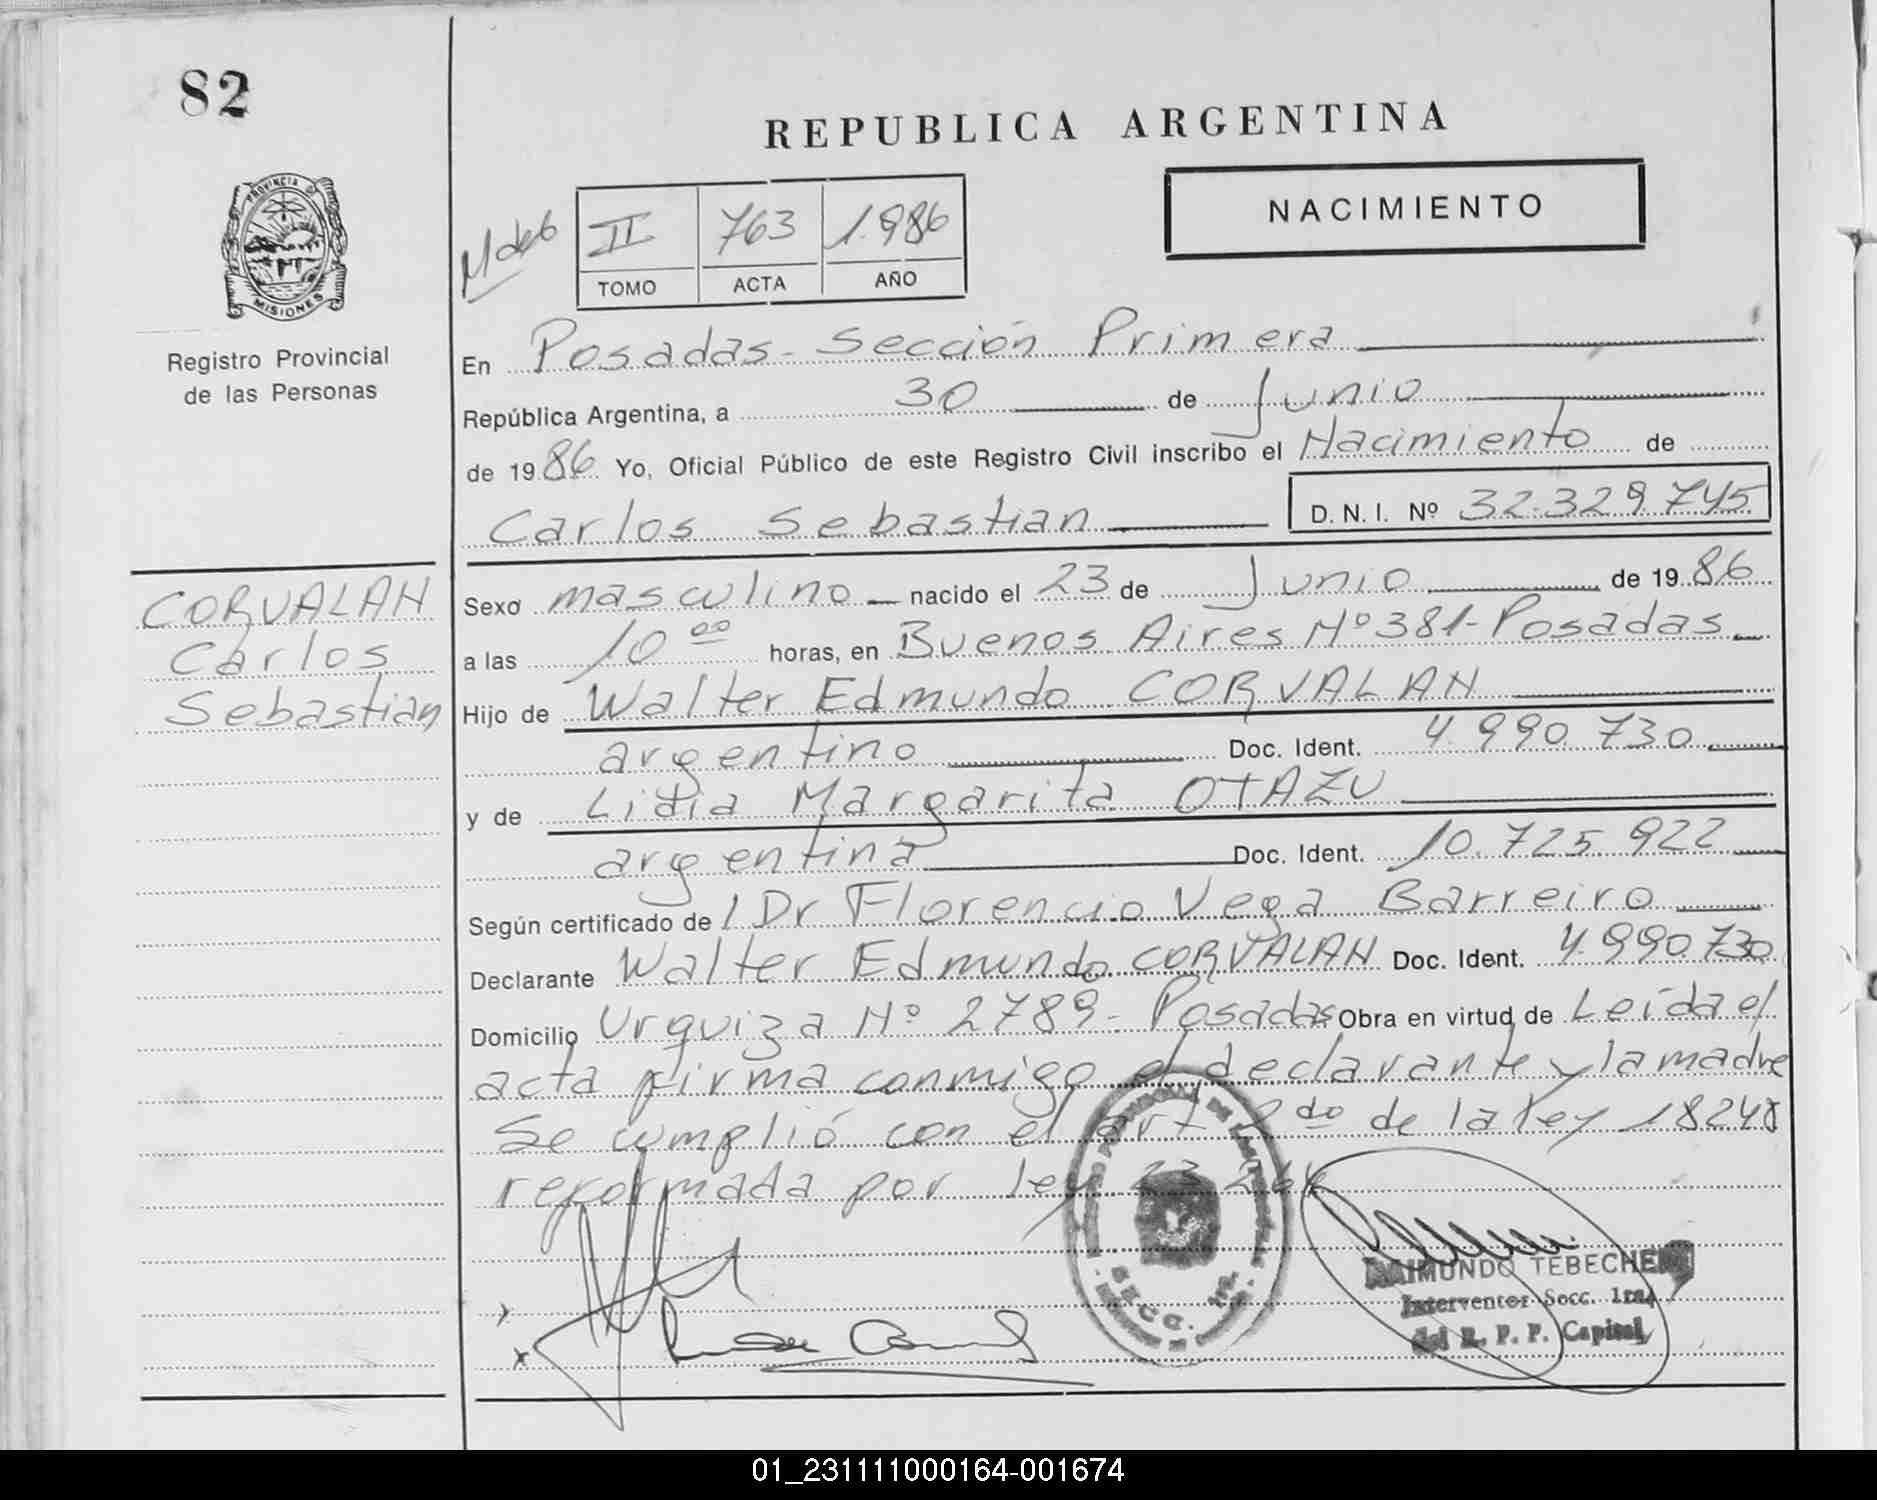 82
REPUBLICA ARGENTINA
PROVINCIA DE
MISIONES
Registro Provincial
de las Personas
II 763 1.986
TOMO ACTA AÑO
NACIMIENTO
En Posadas - Sección Primera
República Argentina, a 30 de Junio
de 19 86 Yo, Oficial Público de este Registro Civil inscribo el Nacimiento de
Carlos Sebastian D. N. I. Nº 32.329.745
CORVALAN
Carlos
Sebastian
Sexo masculino nacido el 23 de Junio de 19 86
a las 10 00 horas, en Buenos Aires Nº 381 - Posadas
Hijo de Walter Edmundo CORVALAN
argentino Doc. Ident. 4.990.730
y de Lidia Margarita OTAZU
argentina Doc. Ident. 10.725.922
Según certificado de l Dr Florencio Vega Barreiro
Declarante Walter Edmundo CORVALAN Doc. Ident. 4.990.730
Domicilio Urquiza Nº 2789 - Posadas Obra en virtud de Leída el
acta firma conmigo el declarante y la madre
Se cumplió con el art 2do de la ley 18248
reformada por ley 23.264
RAIMUNDO TEBECHERI
Interventor Secc. 1ra.
del R. P. P. Capital
SECC. 1ra.
01_231111000164-001674